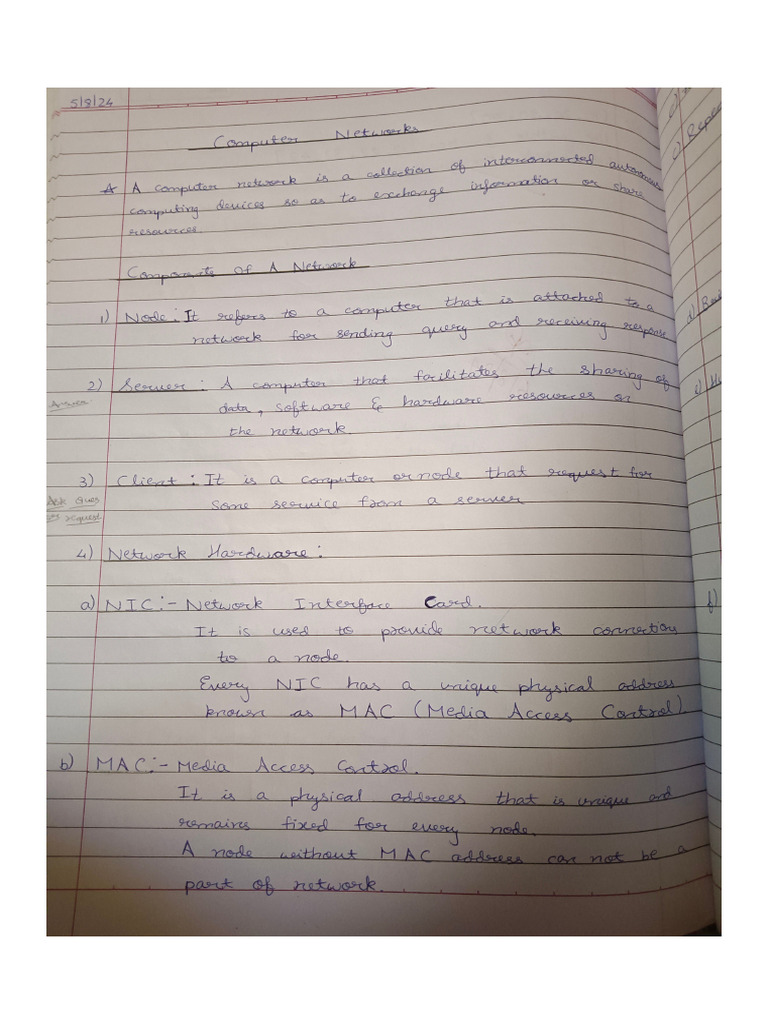 5/8/24
Computer Networks
A computer network is a collection of interconnected autonomous
computing devices so as to exchange information or share
resources.
Components of A Network
1) Node: It refers to a computer that is attached to a
network for sending query and receiving response
2) Server: A computer that facilitates the sharing of
Answer
data, software & hardware resources on
the network.
3) Client: It is a computer or node that request for
Ask Ques
or request
some service from a server
4) Network Hardware:
a) NIC:- Network Interface Card.
It is used to provide network connection
to a node.
Every NIC has a unique physical address
known as MAC (Media Access Control).
b) MAC:- Media Access Control.
It is a physical address that is unique and
remains fixed for every node.
A node without MAC address can not be a
part of network.
c)
d)
f)